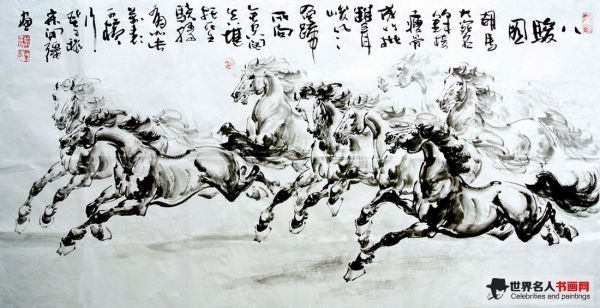 八
駿
圖
胡馬
大宛名
鋒稜
瘦骨
成竹批
雙耳
峻風入
四蹄
所向
無空闊
真堪
托死生
驍騰
有如此
萬里
可橫
行
世界名人书画网
Celebrities and paintings